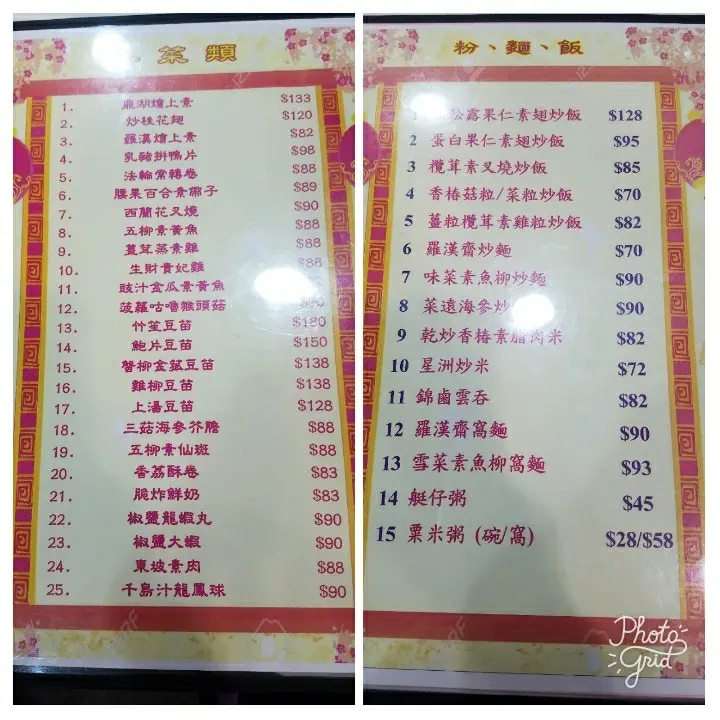 菜類
1. 鼎湖燴上素 $133
2. 炒桂花翅 $120
3. 羅漢燴上素 $82
4. 乳豬拼鴨片 $98
5. 法輪常轉卷 $88
6. 腰果百合素佛子 $89
7. 西蘭花叉燒 $90
8. 五柳素黃魚 $88
9. 薑茸蒸素雞 $88
10. 生財貴妃雞 $88
11. 豉汁金瓜素黃魚
12. 菠蘿咕嚕猴頭菇
13. 竹笙豆苗 $180
14. 鮑片豆苗 $150
15. 蟹柳金菰豆苗 $138
16. 雞柳豆苗 $138
17. 上湯豆苗 $128
18. 三菇海參芥膽 $88
19. 五柳素仙斑 $88
20. 香荔酥卷 $83
21. 脆炸鮮奶 $83
22. 椒鹽龍蝦丸 $90
23. 椒鹽大蝦 $90
24. 東坡素肉 $88
25. 千島汁龍鳳球 $90
粉、麵、飯
1 松露果仁素翅炒飯 $128
2 蛋白果仁素翅炒飯 $95
3 欖茸素叉燒炒飯 $85
4 香椿菇粒/菜粒炒飯 $70
5 薑粒欖茸素雞粒炒飯 $82
6 羅漢齋炒麵 $70
7 味菜素魚柳炒麵 $90
8 菜遠海參炒 $90
9 乾炒香椿素腊肉米 $82
10 星洲炒米 $72
11 錦鹵雲吞 $82
12 羅漢齋窩麵 $90
13 雪菜素魚柳窩麵 $93
14 艇仔粥 $45
15 粟米粥 (碗/窩) $28/$58
Photo
Grid